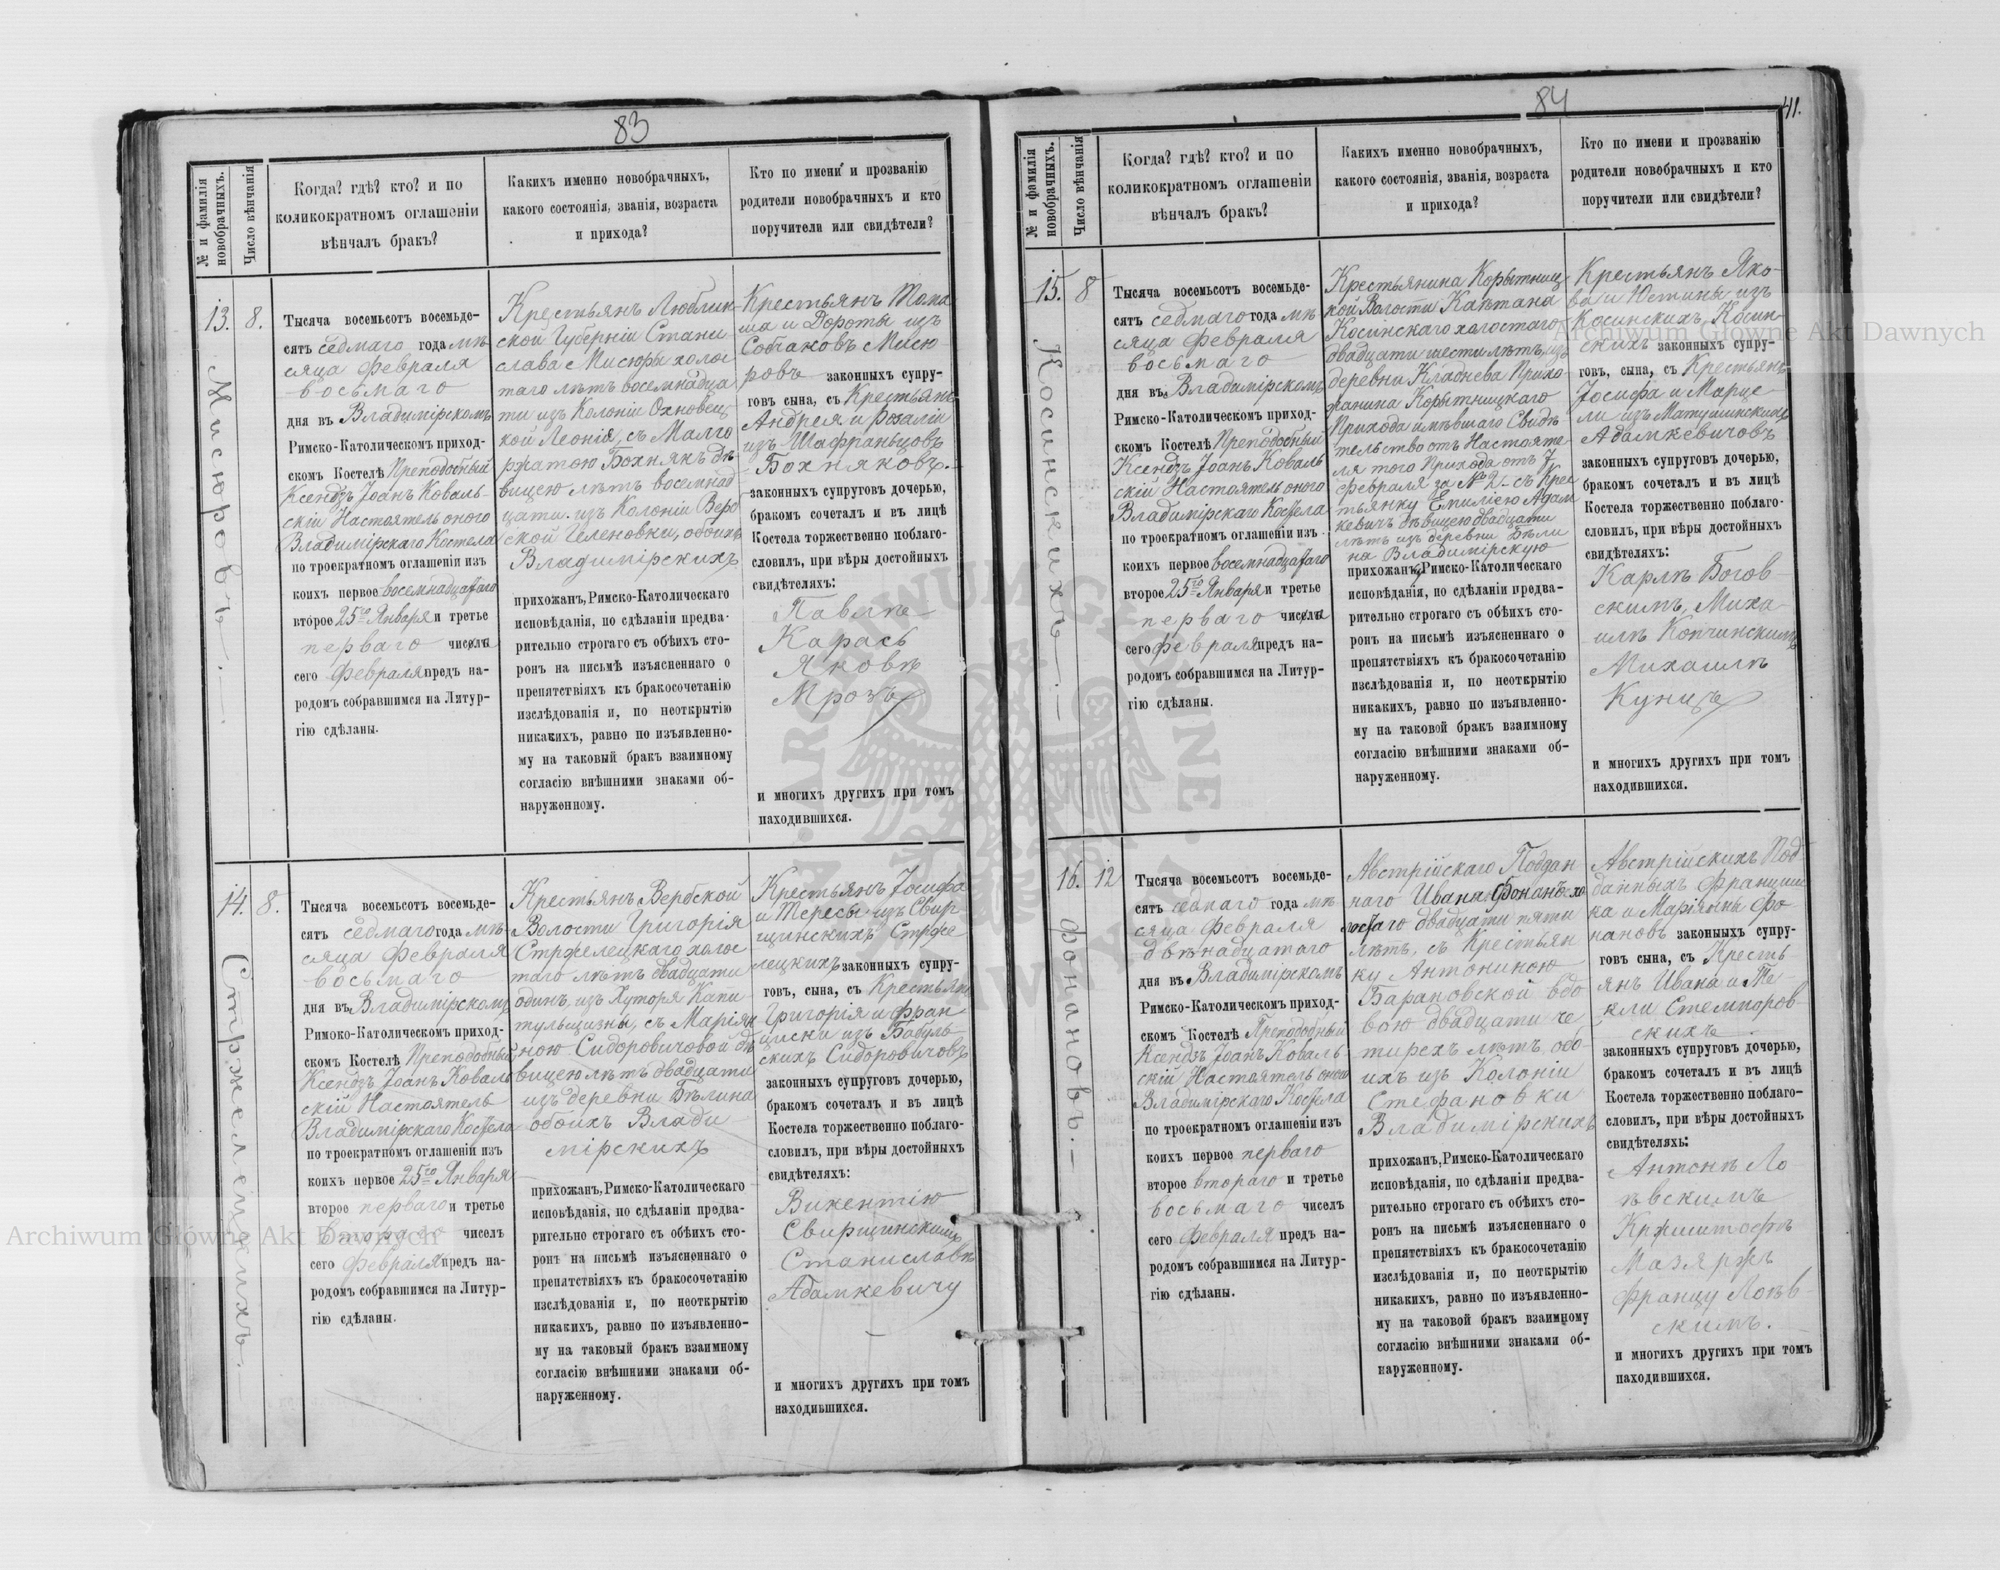 83
№ и фамилія новобрачныхъ.
Число вѣнчанія
Когда? гдѣ? кто? и по
коликократномъ оглашеніи
вѣнчалъ бракъ?
Какихъ именно новобрачныхъ,
какого состоянія, званія, возраста
и прихода?
Кто по имени и прозванію
родители новобрачныхъ и кто
поручители или свидѣтели?
13.
8.
Мисюровъ.
Тысяча восемьсотъ восемьде-
сятъ седмаго года мѣ-
сяца Февраля
восьмаго
дня въ Владимірскомъ
Римско-Католическомъ приход-
скомъ Костелѣ Преподобный
Ксендзъ Іоанъ Коваль-
скій Настоятель оного
Владимірскаго Костела
по троекратномъ оглашеніи изъ
коихъ первое восемнадцатаго
второе 25го Января и третье
перваго числъ
сего Февраля предъ на-
родомъ собравшимся на Литур-
гію сдѣланы.
Крестьянъ Люблин-
ской Губерніи Стани-
слава Мисюры холос-
таго лѣтъ восемнадца-
ти изъ Колоніи Охновец-
кой Леонія, съ Малго
ржатою Бохнякъ дѣ-
вицею лѣтъ восемнад
цати изъ Колоніи Верб
ской Геленовки, обоихъ
Владимірскихъ
прихожан, Римско-Католическаго
исповѣданія, по сдѣланіи предва-
рительно строгаго съ обѣихъ сто-
ронъ на письмѣ изъясненнаго о
препятствіяхъ къ бракосочетанію
изслѣдованія и, по неоткрытію
никакихъ, равно по изъявленно-
му на таковый бракъ взаимному
согласію внѣшними знаками об-
наруженному.
Крестьянъ Тома
ша и Дороты изъ
Собчаковъ Мисю
ровъ законныхъ супру-
говъ сына, съ Крестьянъ
Андрея и Розаліи
изъ Шафранцовъ
Бохняковъ.
законныхъ супруговъ дочерью,
бракомъ сочеталъ и въ лицѣ
Костела торжественно поблаго-
словилъ, при вѣры достойныхъ
свидѣтеляхъ:
Павлѣ
Карась
Яковѣ
Мрозъ
и многихъ другихъ при томъ
находившихся.
14.
8.
Стржелецкихъ.
Тысяча восемьсотъ восемьде-
сятъ седмаго года мѣ-
сяца Февраля
восьмаго
дня въ Владимірскомъ
Римоко-Католическомъ приход-
скомъ Костелѣ Преподобный
Ксендзъ Іоанъ Коваль
скій Настоятель
Владимірскаго Костела
по троекратномъ оглашеніи изъ
коихъ первое 25го Января
второе перваго и третье
втораго чиселъ
сего Февраля предъ на-
родомъ собравшимся на Литур-
гію сдѣланы.
Крестьянъ Вербской
Волости Григорія
Стржелецкаго холос
таго лѣтъ двадцати
одинъ, изъ Хуторя Капи
тульщизны, съ Маріян
ною Сидоровичовой дѣ
вицею лѣтъ двадцати
изъ деревни Бѣлина
обоих Влади
мірскихъ
прихожан, Римско-Католическаго
исповѣданія, по сдѣланіи предва-
рительно строгаго съ обѣихъ сто-
ронъ на письмѣ изъясненнаго о
препятствіяхъ къ бракосочетанію
изслѣдованія и, по неоткрытію
никакихъ, равно по изъявленно-
му на таковый бракъ взаимному
согласію внѣшними знаками об-
наруженному.
Крестьянъ Іосифа
и Тересы изъ Свир
щинскихъ Стрже
лецкихъ законныхъ супру-
говъ, сына, съ Крестьянъ
Григорія и Фран
циски изъ Бабуль
скихъ Сидоровичовъ
законныхъ супруговъ дочерью,
бракомъ сочеталъ и въ лицѣ
Костела торжественно поблаго-
словилъ, при вѣры достойныхъ
свидѣтеляхъ:
Викентію
Свирщинскимъ
Станиславѣ
Адамкевичу
и многихъ другихъ при томъ
находившихся.
84
41.
№ и фамилія новобрачныхъ.
Число вѣнчанія
Когда? гдѣ? кто? и по
коликократномъ оглашеніи
вѣнчалъ бракъ?
Какихъ именно новобрачныхъ,
какого состоянія, званія, возраста
и прихода?
Кто по имени и прозванію
родители новобрачныхъ и кто
поручители или свидѣтели?
15.
8
Косинскихъ.
Тысяча восемьсотъ восемьде-
сятъ седмаго года мѣ
сяца Февраля
восьмаго
дня въ Владимірскомъ
Римско-Католическомъ приход-
скомъ Костелѣ Преподобный
Ксендзъ Іоанъ Коваль
скій Настоятель оного
Владимірскаго Костела
по троекратномъ оглашеніи изъ
коихъ первое восемнадцатаго
второе 25го Января и третье
перваго числъ
сего Февраля предъ на-
родомъ собравшимся на Литур-
гію сдѣланы.
Крестьянина Корытниц-
кой Волости Каетана
Косинскаго холостаго
двадцати шести лѣтъ, изъ
деревни Кладнева Прихо-
жанина Корытницкаго
Прихода имѣвшаго Свидѣ
тельство отъ Настояте-
ля того Прихода отъ 7
Февраля за № 2 съ Крес
тьянку Емиліею Адам
кевичъ дѣвицею двадцати
лѣтъ изъ деревни Бѣли
на Владимірскую
прихожан, Римско-Католическаго
исповѣданія, по сдѣланіи предва-
рительно строгаго съ обѣихъ сто-
ронъ на письмѣ изъясненнаго о
препятствіяхъ къ бракосочетанію
изслѣдованія и, по неоткрытію
никакихъ, равно по изъявленно-
му на таковой бракъ взаимному
согласію внѣшними знаками об-
наруженному.
Крестьянъ Яко-
ва и Юстины изъ
Косинскихъ, Косин-
скихъ законныхъ супру-
говъ, сына, съ Крестьянъ
Іосифа и Марце
ли изъ Матушинскихъ
Адамкевичовъ
законныхъ супруговъ дочерью,
бракомъ сочеталъ и въ лицѣ
Костела торжественно поблаго-
словилъ, при вѣры достойныхъ
свидѣтеляхъ:
Карлѣ Богов-
скимъ, Миха
илѣ Копчинскимъ
Михаилѣ
Куницъ
и многихъ другихъ при томъ
находившихся.
16.
12
Фонановъ.
Тысяча восемьсотъ восемьде-
сятъ седмаго года мѣ
сяца Февраля
двѣнадцатаго
дня въ Владимірскомъ
Римско-Католическомъ приход-
скомъ Костелѣ Преподобный
Ксендзъ Іоанъ Коваль-
скій Настоятель оного
Владимірскаго Костела
по троекратномъ оглашеніи изъ
коихъ первое перваго
второе втораго и третье
восьмаго чиселъ
сего Февраля предъ на-
родомъ собравшимся на Литур-
гію сдѣланы.
Австрійскаго Поддан
наго Ивана Фонанъ хо
лостаго двадцати пяти
лѣтъ, съ Крестьян
ку Антониною
Барановской вдо
вою двадцати че
тирехъ лѣтъ, обо-
ихъ изъ Колоніи
Стефановки
Владимірскихъ
прихожан, Римско-Католическаго
исповѣданія, по сдѣланіи предва-
рительно строгаго съ обѣихъ сто-
ронъ на письмѣ изъясненнаго о
препятствіяхъ къ бракосочетанію
изслѣдованія и, по неоткрытію
никакихъ, равно по изъявленно-
му на таковой бракъ взаимному
согласію внѣшними знаками об-
наруженному.
Австрійскихъ Под
данныхъ Францыш
ка и Маріяны Фо
нановъ законныхъ супру-
говъ сына, съ Кресть-
янъ Ивана и Те-
кли Стемпоров-
скихъ
законныхъ супруговъ дочерью,
бракомъ сочеталъ и въ лицѣ
Костела торжественно поблаго-
словилъ, при вѣры достойныхъ
свидѣтеляхъ:
Антонѣ Ло
ѣвскимъ
Кржиштофѣ
Мазяржъ
Францу Лоѣв-
скимъ.
и многихъ другихъ при томъ
находившихся.
Archiwum Główne Akt Dawnych
Archiwum Główne Akt Dawnych
ARCHIWUM GŁÓWNE AKT DAWNYCH